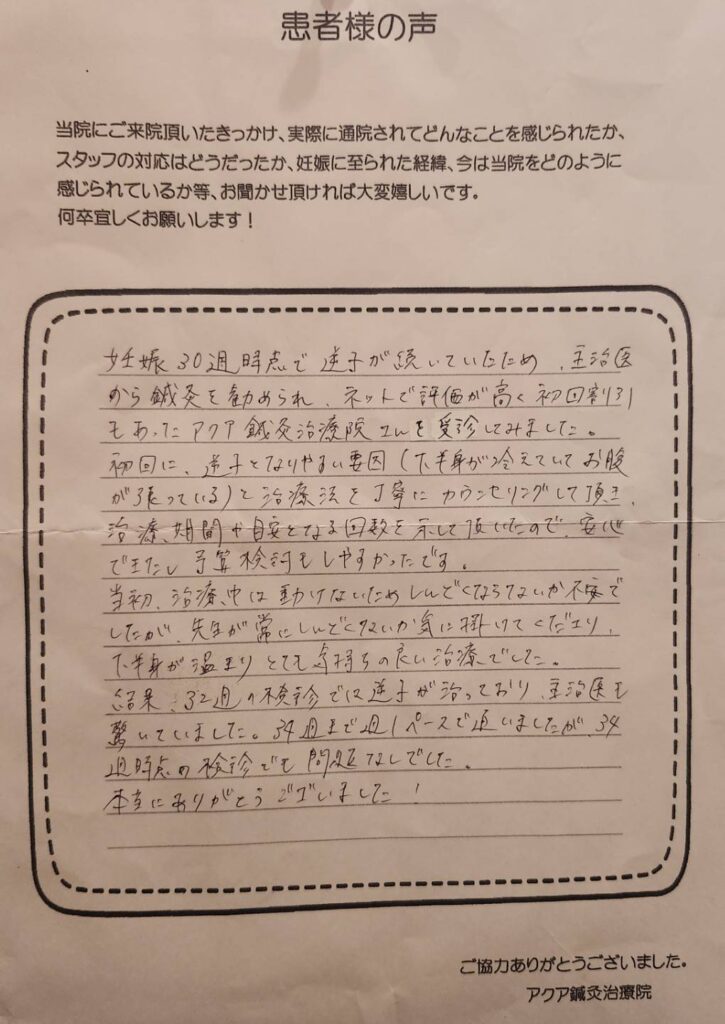 患者様の声
当院にご来院頂いたきっかけ、実際に通院されてどんなことを感じられたか、
スタッフの対応はどうだったか、妊娠に至られた経緯、今は当院をどのように
感じられているか等、お聞かせ頂ければ大変嬉しいです。
何卒宜しくお願いします!
妊娠30週時点で逆子が続いていたため、主治医
から鍼灸を勧められ、ネットで評価が高く初回割引
もあったアクア鍼灸治療院さんを受診してみました。
初回に、逆子となりやすい要因(下半身が冷えていてお腹
が張っている)と治療法を丁寧にカウンセリングして頂き、
治療期間や目安となる回数を示して頂いたので、安心
できたし予算検討もしやすかったです。
当初、治療中は動けないためしんどくならないか不安で
したが、先生が常にしんどくないか気に掛けてくださり、
下半身が温まりとても気持ちの良い治療でした。
結果、32週の検診では逆子が治っており、主治医も
驚いていました。34週まで週1ペースで通いましたが、34
週時点の検診でも問題なしでした。
本当にありがとうございました!
ご協力ありがとうございました。
アクア鍼灸治療院